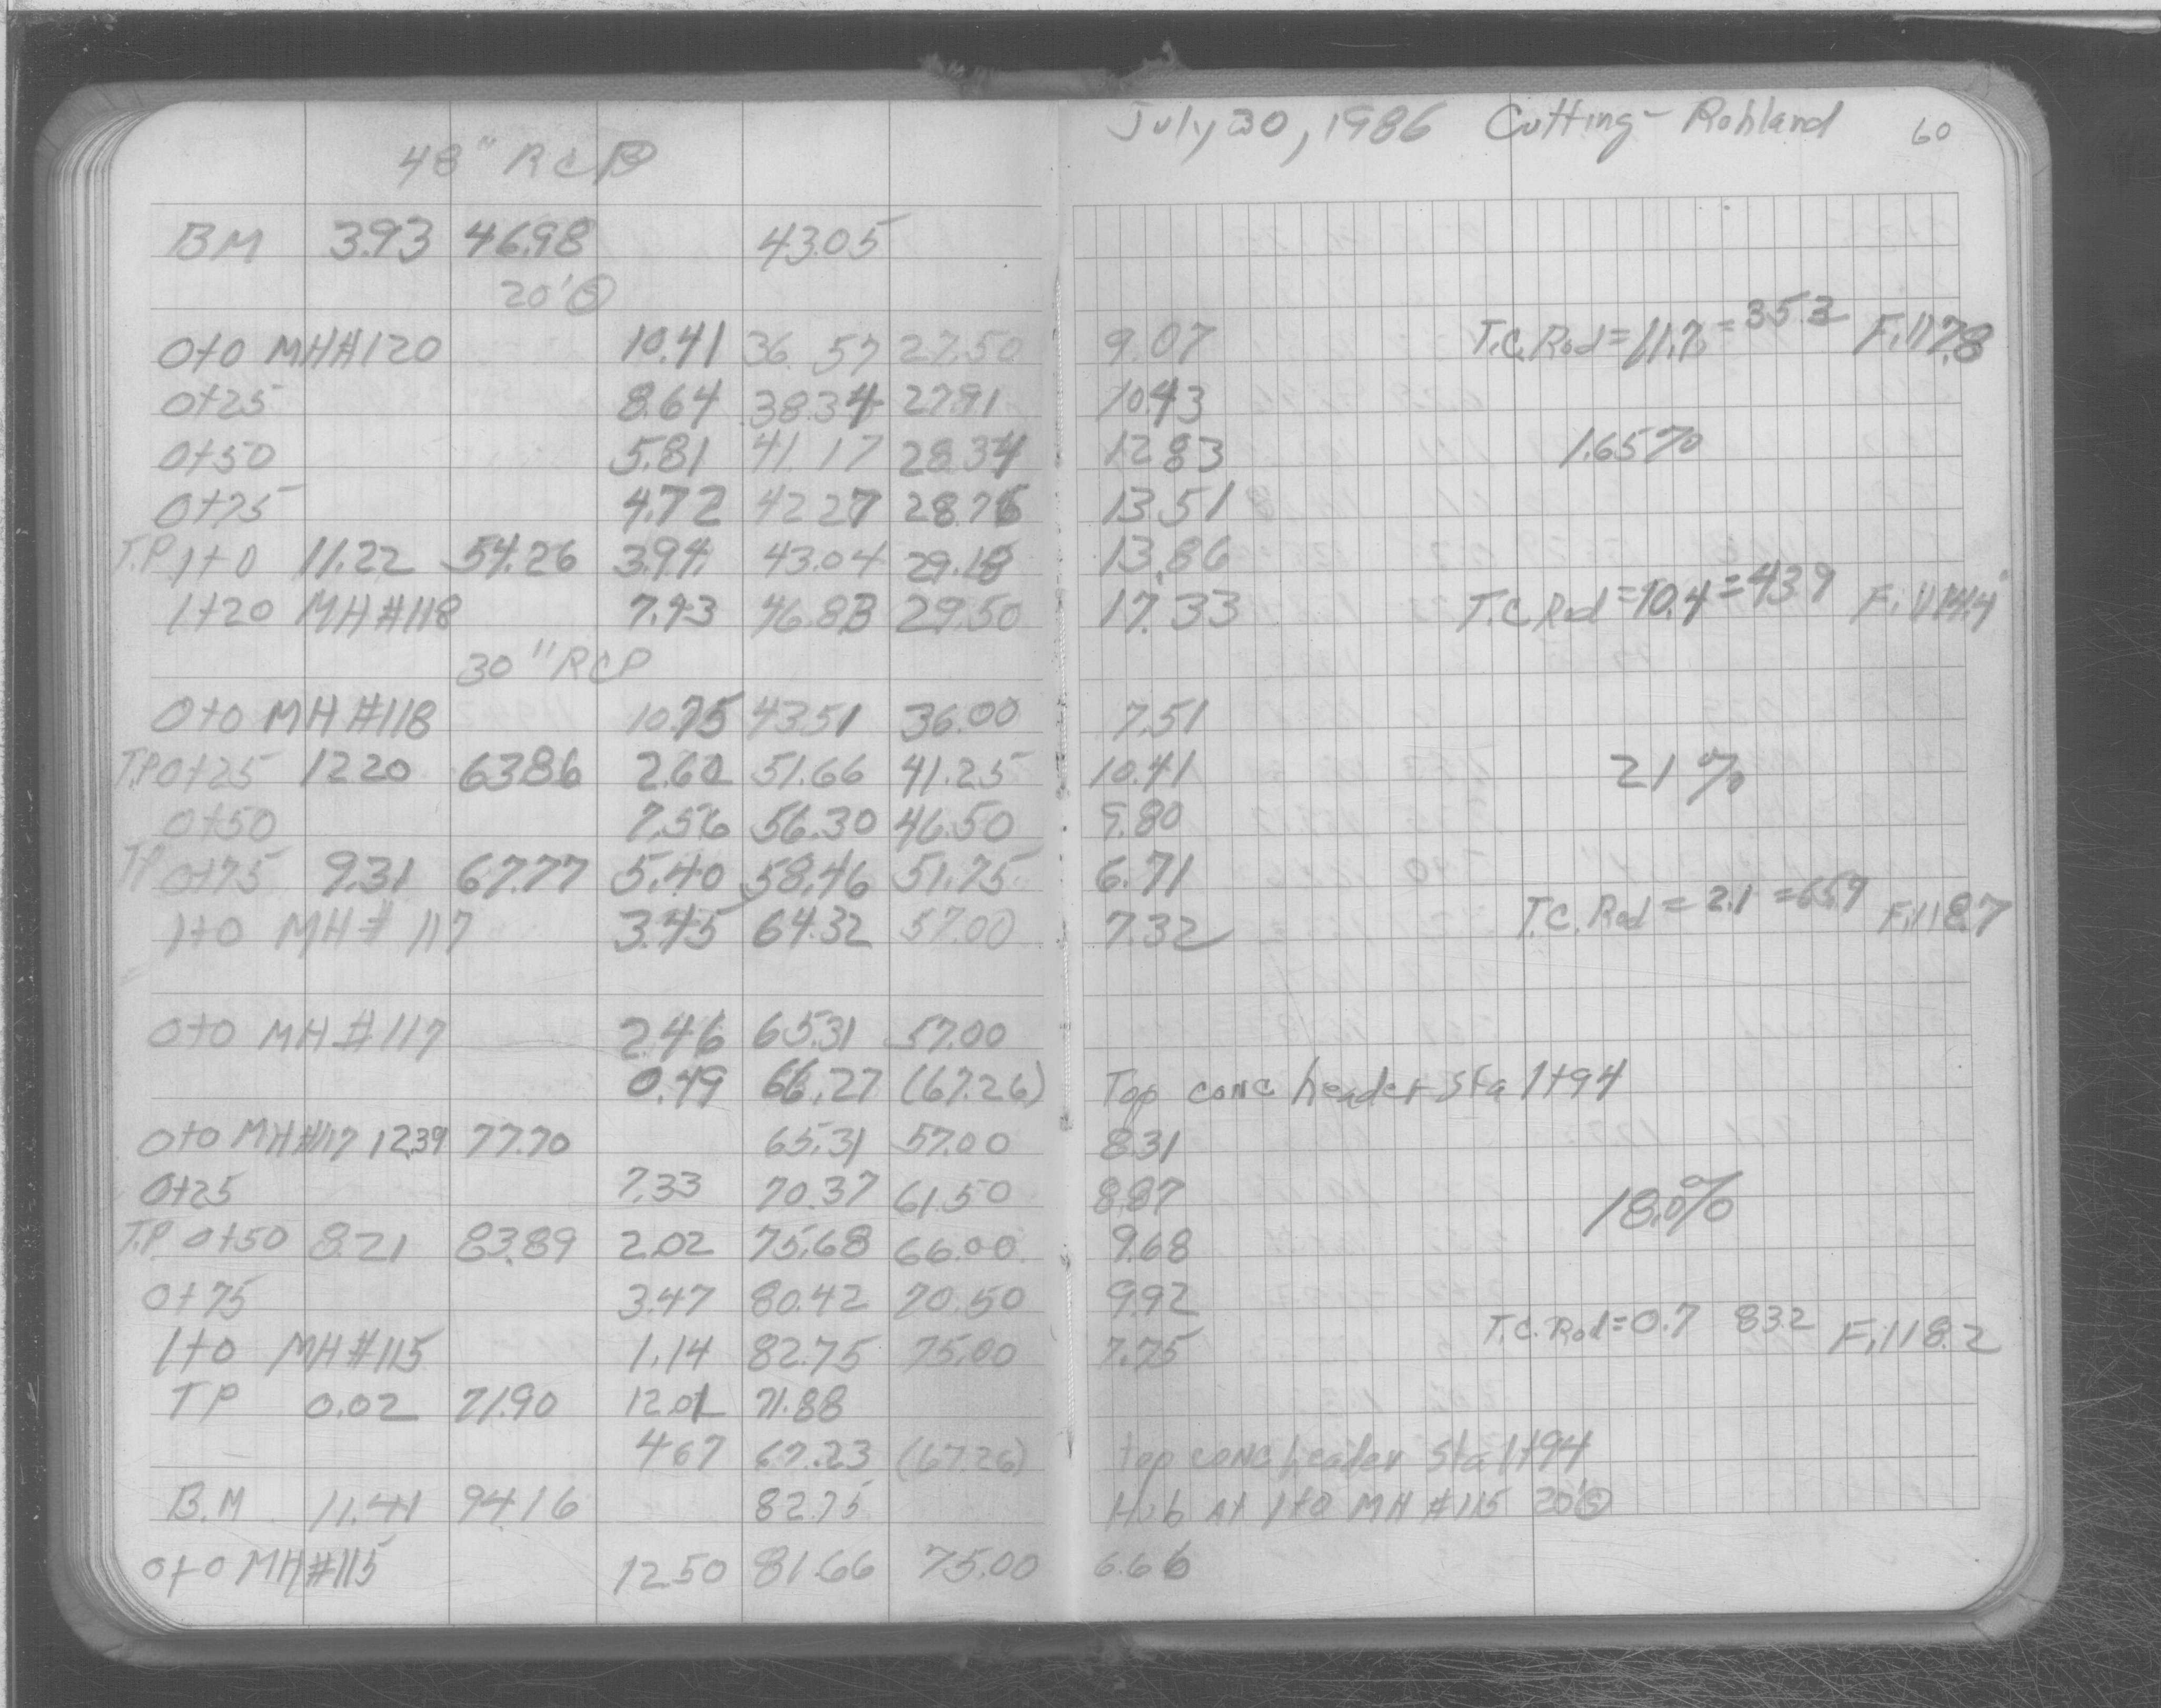 July 30, 1986 Cutting - Rohland 60
48" RCP
BM 3.93 46.98 43.05
20'
0+0 MH#120 10.41 36.57 27.50 9.07 T.C. Rod = 11.7 = 35.3 F. 117.8
0+25 8.64 38.34 27.91 10.43
0+50 5.81 41.17 28.34 12.83 1.65%
0+75 4.72 42.27 28.76 13.51
T.P 1+0 11.22 54.26 3.94 43.04 29.18 13.86
1+20 MH#118 7.43 46.83 29.50 17.33 T.C. Rod = 10.4 = 43.9 F. 114.4
30" RCP
0+0 MH#118 10.75 43.51 36.00 7.51
T.P 0+25 12.20 63.86 2.60 51.66 41.25 10.41 21%
0+50 7.56 56.30 46.50 9.80
TP 0+75 9.31 67.77 5.40 58.46 51.75 6.71
1+0 MH# 117 3.45 64.32 57.00 7.32 T.C. Rod = 2.1 = 65.9 F. 118.7
0+0 MH#117 2.46 65.31 57.00
0.49 66.27 (67.26) Top conc header Sta 1+94
0+0 MH#117 12.39 77.70 65.31 57.00 8.31
0+25 7.33 70.37 61.50 8.87
T.P 0+50 8.21 83.89 2.02 75.68 66.00 9.68 18.0%
0+75 3.47 80.42 70.50 9.92
1+0 MH#115 1.14 82.75 75.00 7.75 T.C. Rod = 0.7 83.2 F. 118.2
TP 0.02 71.90 12.01 71.88
4.67 67.23 (67.26) top conc header Sta 1+94
B.M 11.41 94.16 82.75 Hub At 1+0 MH #115 20'
0+0 MH#115 12.50 81.66 75.00 6.66